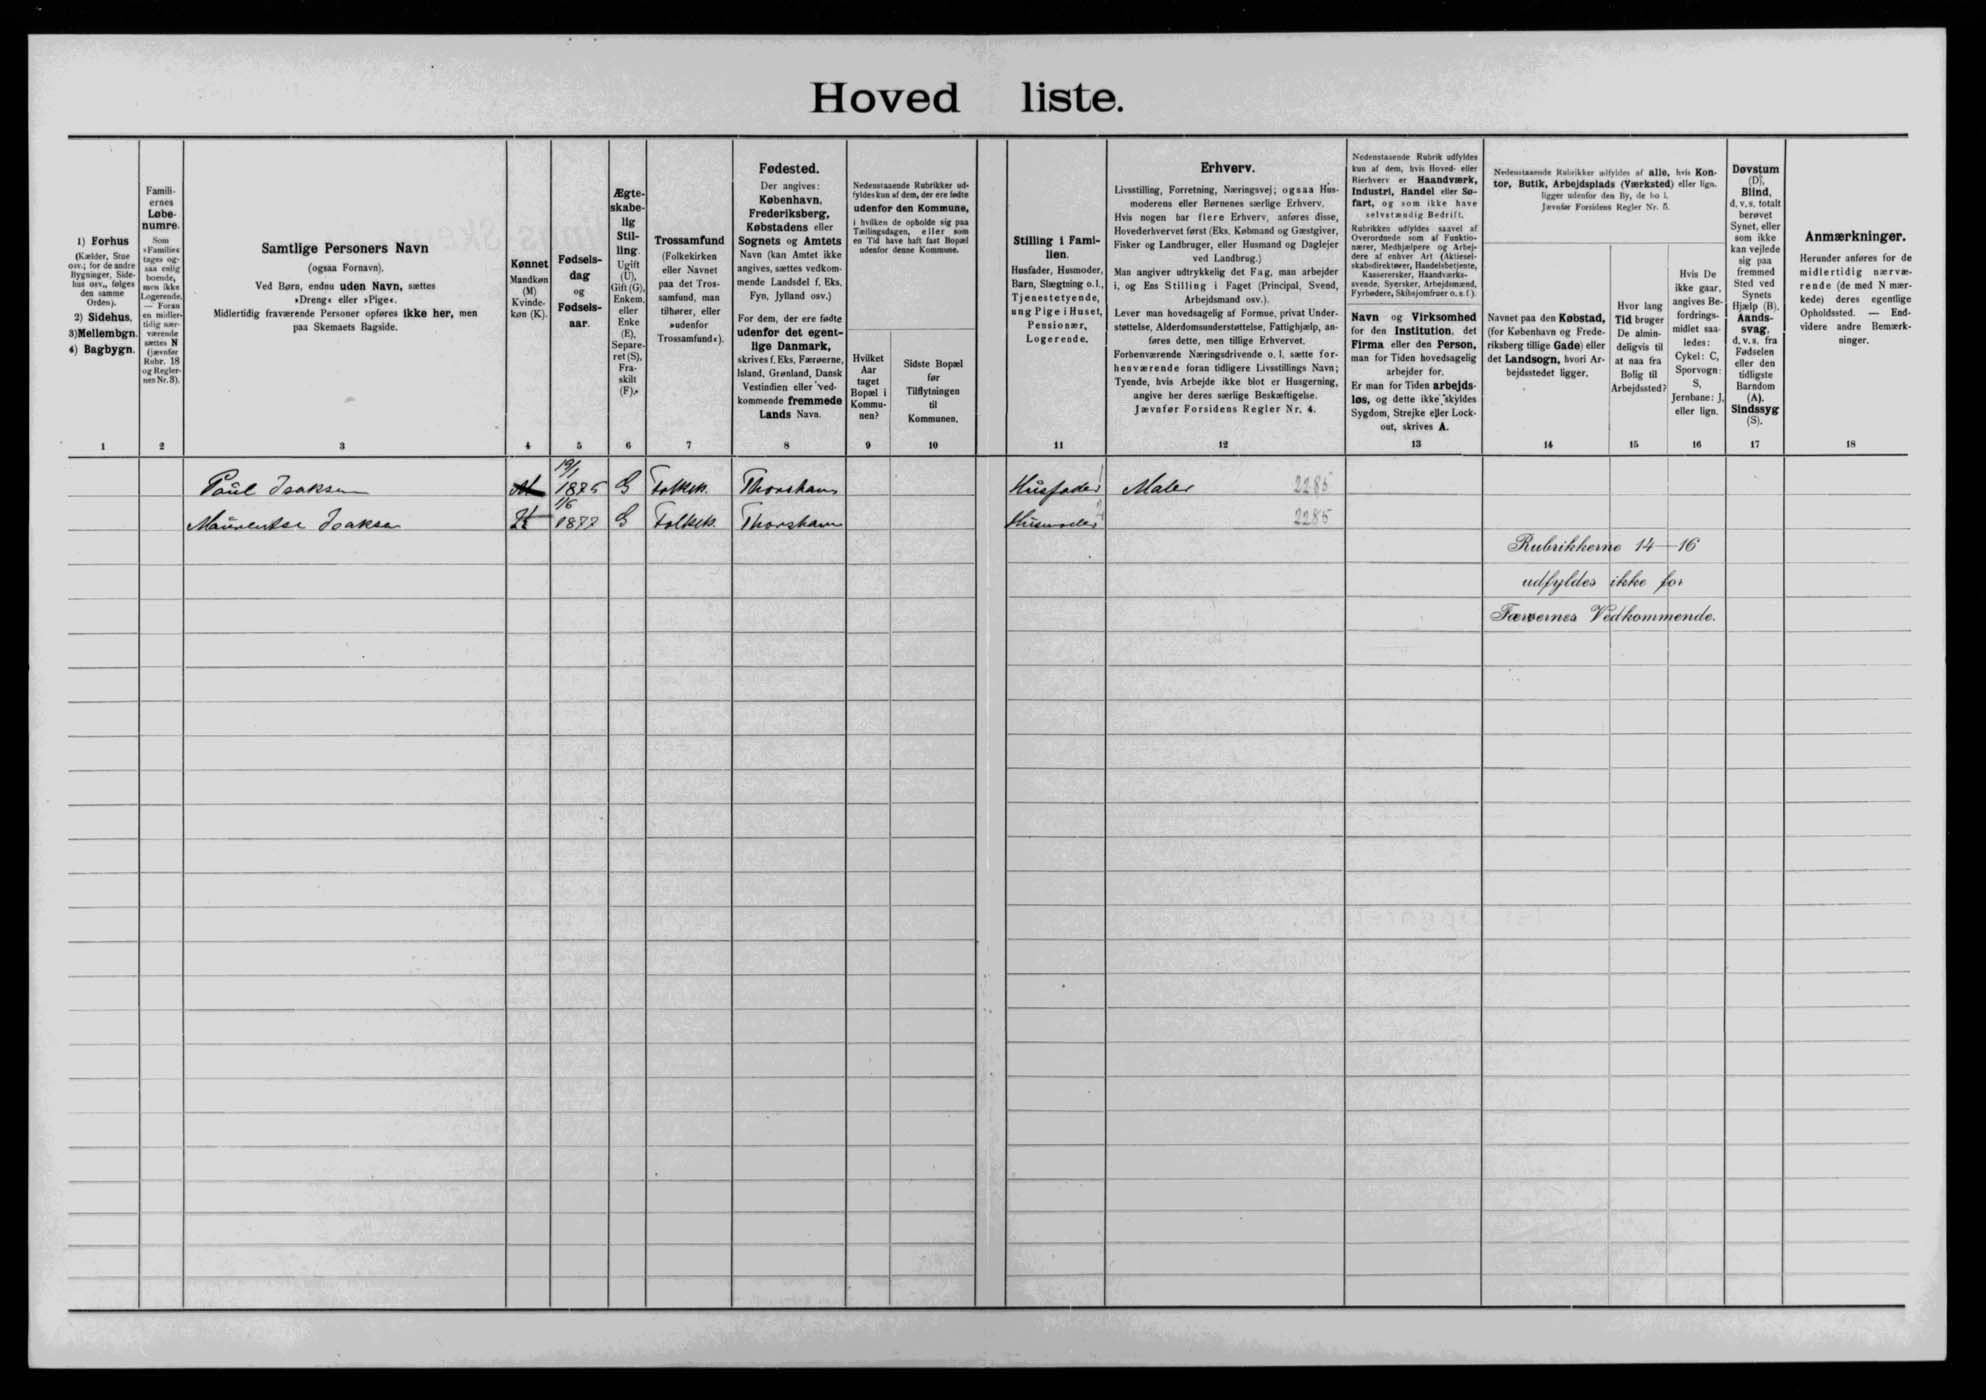 Hoved liste.
1) Forhus
(Kælder, Stue
osv.; for de andre
Bygninger, Side-
hus osv., følges
den samme
Orden).
2) Sidehus.
3) Mellembgn.
4) Bagbygn.
1
Famili-
ernes
Løbe-
numre.
Som
»Familie«
tages og-
saa enlig
boende,
men ikke
Logerende.
— Foran
en midler-
tidig nær-
værende
sættes N
(jævnfør
Rubr. 18
og Regler-
nes Nr. 3).
2
Samtlige Personers Navn
(ogsaa Fornavn).
Ved Børn, endnu uden Navn, sættes
»Dreng« eller »Pige«.
Midlertidig fraværende Personer opføres ikke her, men
paa Skemaets Bagside.
3
Kønnet
Mandkøn
(M)
Kvinde-
køn (K).
4
Fødsels-
dag
og
Fødsels-
aar.
5
Ægte-
skabe-
lig
Stil-
ling.
Ugift
(U),
Gift (G),
Enkem.
eller
Enke
(E),
Separe-
ret (S),
Fra-
skilt
(F).
6
Trossamfund
(Folkekirken
eller Navnet
paa det Tros-
samfund, man
tilhører, eller
»udenfor
Trossamfund«).
7
Fødested.
Der angives:
København,
Frederiksberg,
Købstadens eller
Sognets og Amtets
Navn (kan Amtet ikke
angives, sættes vedkom-
mende Landsdel f. Eks.
Fyn, Jylland osv.)
For dem, der ere fødte
udenfor det egent-
lige Danmark,
skrives f. Eks. Færøerne,
Island, Grønland, Dansk
Vestindien eller ved-
kommende fremmede
Lands Navn.
8
Nedenstaaende Rubrikker ud-
fyldes kun af dem, der ere fødte
udenfor den Kommune,
i hvilken de opholde sig paa
Tællingsdagen, eller som
en Tid have haft fast Bopæl
udenfor denne Kommune.
Hvilket
Aar
taget
Bopæl i
Kommu-
nen?
9
Sidste Bopæl
før
Tilflytningen
til
Kommunen.
10
Stilling i Fami-
lien.
Husfader, Husmoder,
Barn, Slægtning o.l.,
Tjenestetyende,
ung Pige i Huset,
Pensionær,
Logerende.
11
Erhverv.
Livsstilling, Forretning, Næringsvej; ogsaa Hus-
moderens eller Børnenes særlige Erhverv.
Hvis nogen har flere Erhverv, anføres disse,
Hovederhvervet først (Eks. Købmand og Gæstgiver,
Fisker og Landbruger, eller Husmand og Daglejer
ved Landbrug.)
Man angiver udtrykkelig det Fag, man arbejder
i, og Ens Stilling i Faget (Principal, Svend,
Arbejdsmand osv.).
Lever man hovedsagelig af Formue, privat Under-
støttelse, Alderdomsunderstøttelse, Fattighjælp, an-
føres dette, men tillige Erhvervet.
Forhenværende Næringsdrivende o. l. sætte for-
henværende foran tidligere Livsstillings Navn;
Tyende, hvis Arbejde ikke blot er Husgerning,
angive her deres særlige Beskæftigelse.
Jævnfør Forsidens Regler Nr. 4.
12
Nedenstaaende Rubrik udfyldes
kun af dem, hvis Hoved- eller
Bierhverv er Haandværk,
Industri, Handel eller Sø-
fart, og som ikke have
selvstændig Bedrift.
Rubrikken udfyldes saavel af
Overordnede som af Funktio-
nærer, Medhjælpere og Arbej-
dere af enhver Art (Aktiesel-
skabsdirektører, Handelsbetjente,
Kasserersker, Haandværks-
svende, Syersker, Arbejdsmænd,
Fyrbødere, Skibsjomfruer o. s. f.).
Navn og Virksomhed
for den Institution, det
Firma eller den Person,
man for Tiden hovedsagelig
arbejder for.
Er man for Tiden arbejds-
løs, og dette ikke skyldes
Sygdom, Strejke eller Lock-
out, skrives A.
13
Nedenstaaende Rubrikker udfyldes af alle, hvis Kon-
tor, Butik, Arbejdsplads (Værksted) eller lign.
ligger udenfor den By, de bo i.
Jævnfør Forsidens Regler Nr. 5.
Navnet paa den Købstad,
(for København og Frede-
riksberg tillige Gade) eller
det Landsogn, hvori Ar-
bejdsstedet ligger.
14
Hvor lang
Tid bruger
De almin-
deligvis til
at naa fra
Bolig til
Arbejdssted?
15
Hvis De
ikke gaar,
angives Be-
fordrings-
midlet saa-
ledes:
Cykel: C,
Sporvogn:
S,
Jernbane: J,
eller lign.
16
Døvstum
(D),
Blind,
d. v. s. totalt
berøvet
Synet, eller
som ikke
kan vejlede
sig paa
fremmed
Sted ved
Synets
Hjælp (B).
Aands-
svag,
d. v. s. fra
Fødselen
eller den
tidligste
Barndom
(A).
Sindssyg
(S).
17
Anmærkninger.
Herunder anføres for de
midlertidig nærvæ-
rende (de med N mær-
kede) deres egentlige
Opholdssted. — End-
videre andre Bemærk-
ninger.
18
Paul Isaksen M 19/1 1875 G Folkek. Thorshavn Husfader 1 Maler 2285
Maurentse Isaksen K 1/6 1877 G Folkek. Thorshavn Husmoder 2 2285
Rubrikkerne 14–16
udfyldes ikke for
Færøernes Vedkommende.